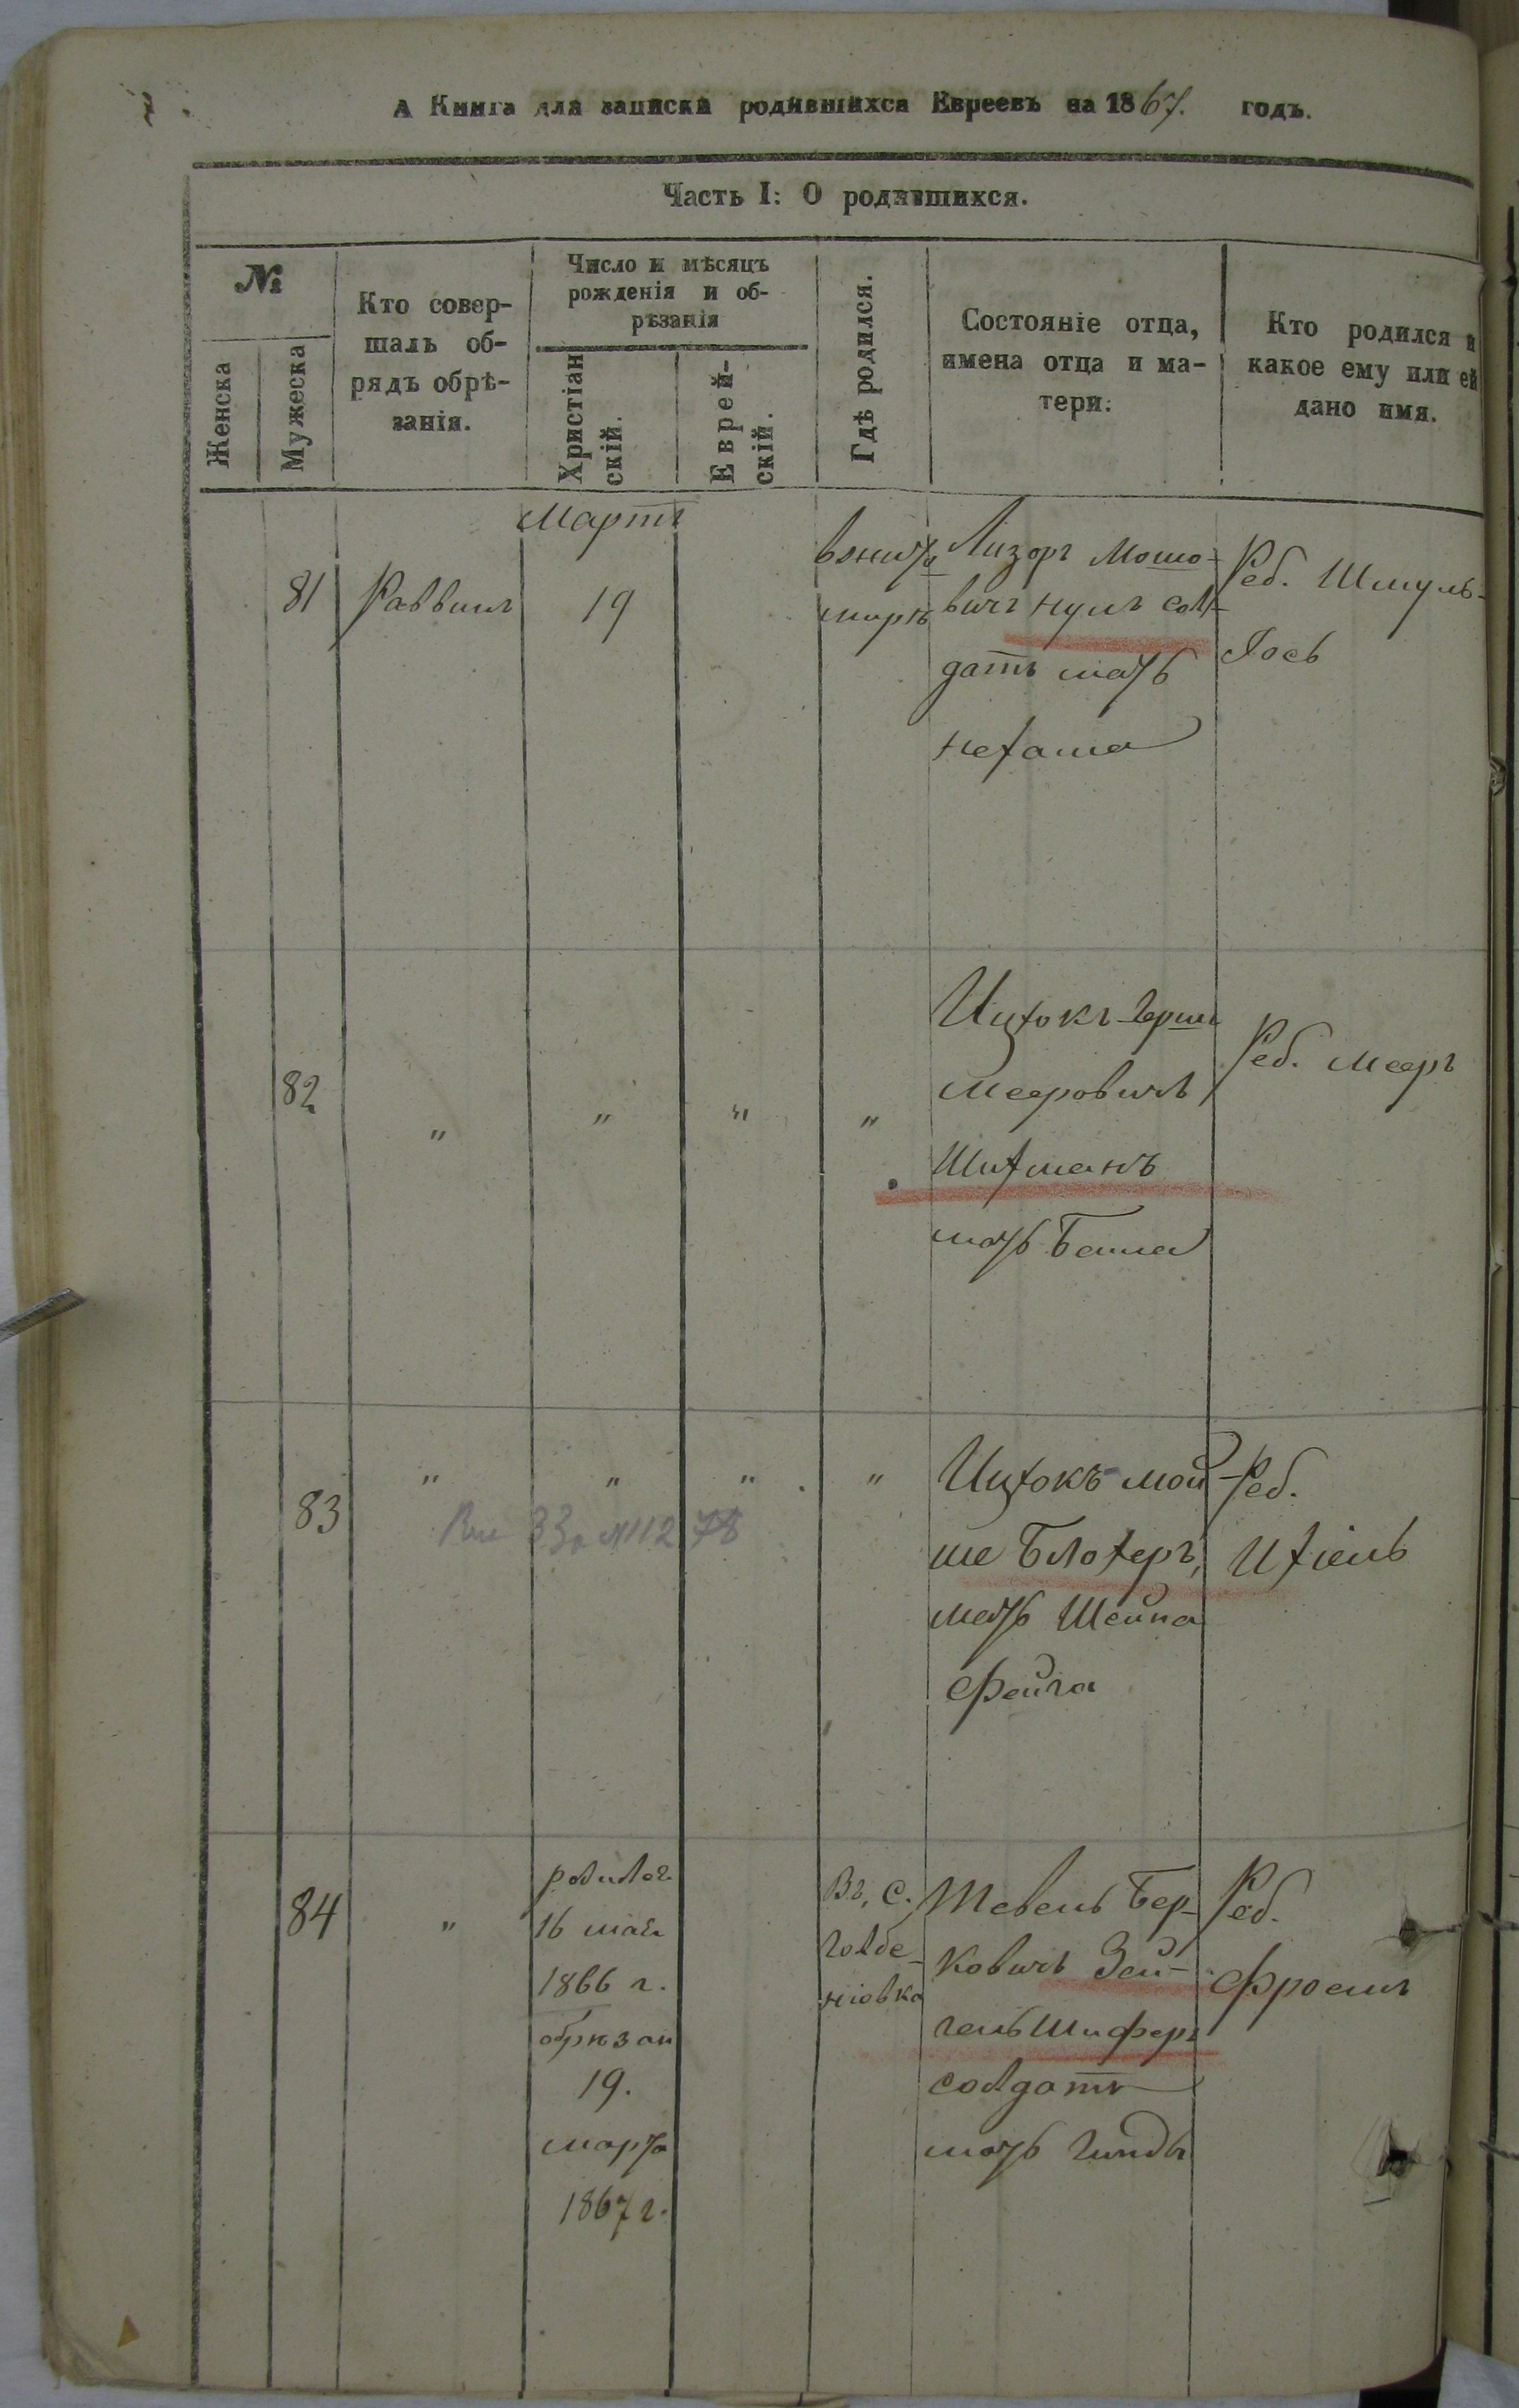 А Книга для записки родившихся Евреевъ на 1867. годъ.
Часть I: О родившихся.
№
Женска
Мужеска
Кто совер-
шалъ об-
рядъ обрѣ-
занія.
Число и мѣсяцъ
рожденія и об-
рѣзанія
Христіан
скій.
Еврей-
скій.
Гдѣ родился.
Состояніе отца,
имена отца и ма-
тери:
Кто родился и
какое ему или ей
дано имя.
Мартъ
81
Раввинъ
19
Лизоръ Мошо-
вичъ Нулъ сол-
датъ мать
Нехама
Реб. Шмуль-
Іось
82
"
"
"
"
Ицхокъ-Герш
Мееровичъ
Шихманъ
мать Башя
Реб. Мееръ
83
"
"
"
"
Ицхокъ-Мой-
ше Блохеръ,
мать Шейна
Фейга
Реб.
Ихіель
84
"
родился
16 мая
1866 г.
обрѣзан
19.
марта
1867 г.
Въ, с.
Голбе-
ніовка
Тевель Бер-
ковичъ Зей-
гель
солдатъ
мать Гинда
Реб.
Фроимъ